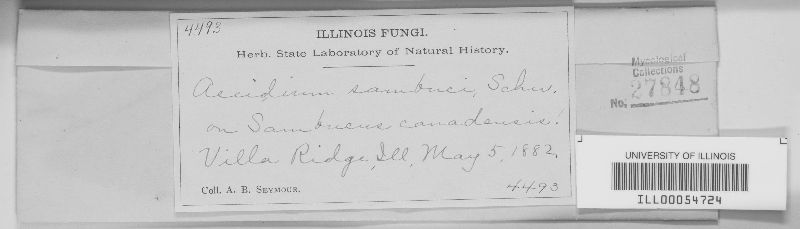 4493
ILLINOIS FUNGI.
Herb. State Laboratory of Natural History.
Aecidium sambuci, Schw.
on Sambucus canadensis!
Villa Ridge, Ill., May 5, 1882.
Coll. A. B. Seymour.
4493
Mycological
Collections
No. 27848
UNIVERSITY OF ILLINOIS
ILL00054724